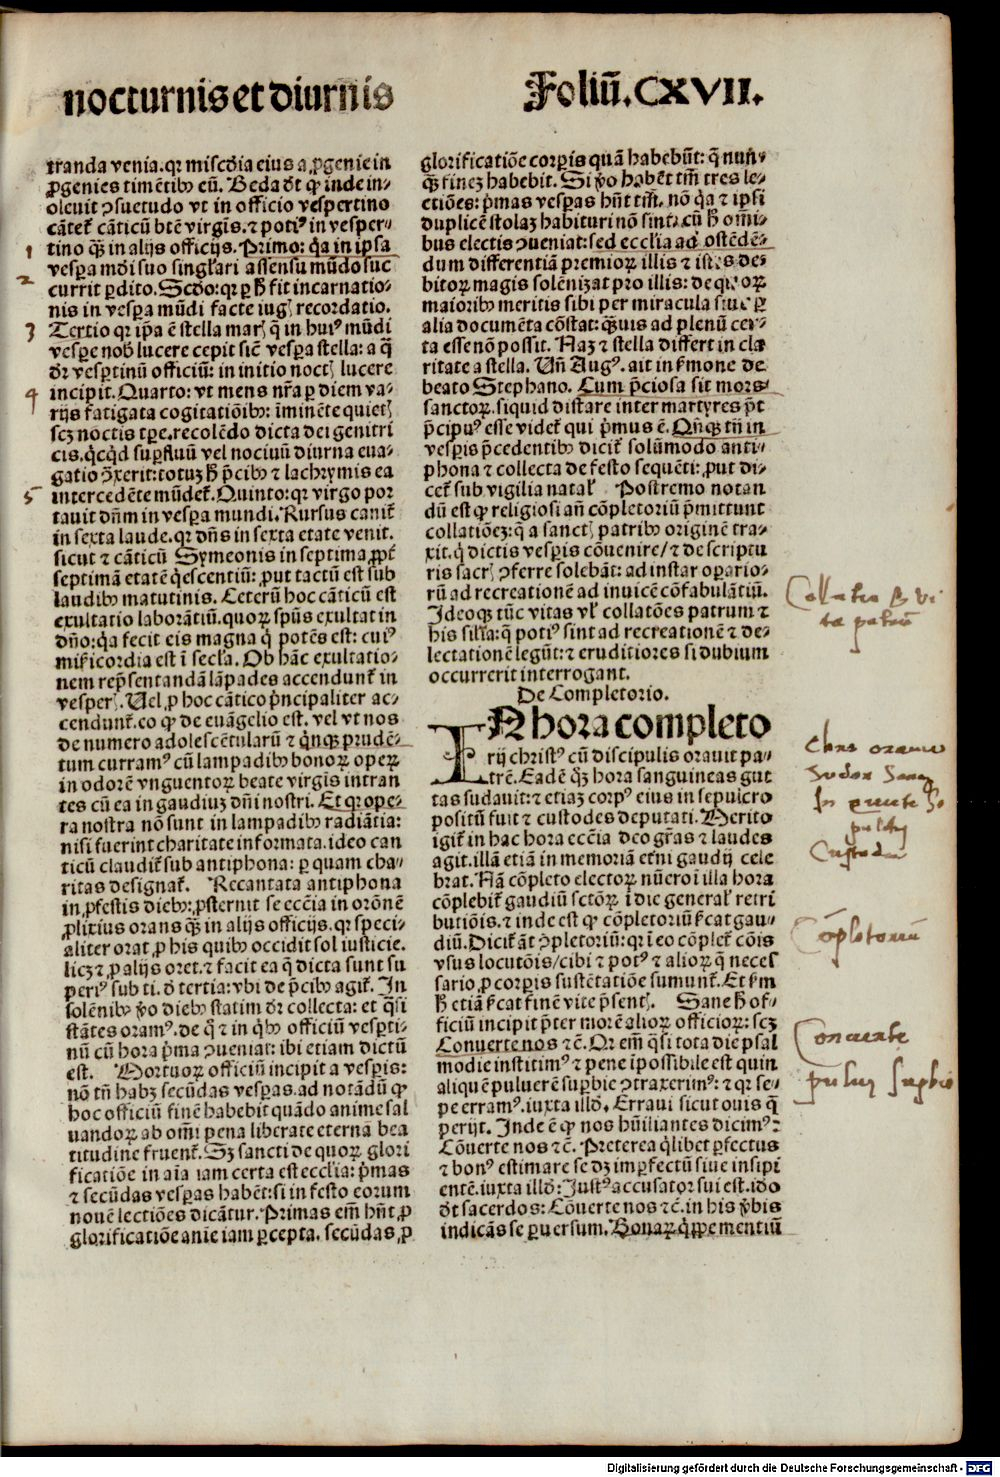 nocturnis et diurnis
Foliū. CXVII.
tranda venia. qꝛ miscďia eius a ꝓgenie in
ꝓgenies timētibꝰ eū. Beda dt̄ ꝙ inde in-
oleuit ꝯsuetudo vt in officio vespertino
cātet᷑ cāticū btē virgīs. ⁊ potiꝰ in vesper-
tino qꝫ in alijs officijs. Primo: q̄a in ipsa
vesꝑa mōi suo singl̓ari assensu mūdo suc
currit ꝑdito. Scďo: qꝛ ꝑ ħ fit incarnatio-
nis in vesꝑa mūdi facte iugꝭ recordatio.
Tertio qꝛ ip̄a ē stella marꝭ q̄ in huiꝰ mūdi
vesꝑe nob̓ lucere cepit sicē vesꝑa stella: a q̄
dr̄ vesꝑtinū officiū: in initio noctꝭ lucere
incipit. Quarto: vt mens nr̄a ꝑ diem va-
rijs fatigata cogitatiōibꝰ: īminēte quietꝭ
scꝫ noctis tꝑe. recolēdo dicta dei genitri
cis. q̇cq̇d suꝑfluū vel nociuū diurna eua-
gatio ꝯ̄xerit: totuꝫ ħ p̄cibꝰ ⁊ lachrymis ea
intercedēte mūdet᷑. Quinto: qꝛ virgo por
tauit dn̄m in vesꝑa mundi. Rursus canit᷑
in sexta laude. qꝛ dn̄s in sexta etate venit.
sicut ⁊ cāticū Symeonis in septima ꝓpt̄
septimā etatē q̇escentiū: ꝓut tactū est sub
laudibꝰ matutinis. Ceterū hoc cāticū est
exultatio laborātiū. quoꝝ spūs exultat in
dn̄o: q̇a fecit eis magna q̇ potēs est: cuiꝰ
mīs̓icordia est ī secl̓a. Ob hāc exultatio-
nem rep̄sentandā lāpades accendunt᷑ in
vesperꝭ. Uel ꝓ hoc cātico p̄ncipaliter ac-
cendunt᷑. eo ꝙ de euāgelio est. vel vt nos
de numero adolescētularū ⁊ q̇nqꝫ prudē-
tum curramꝰ cū lampadibꝰ bonoꝝ opeꝝ
in odorē vnguentoꝝ beate virgīs intran
tes cū ea in gaudiuꝫ dn̄i nostri. Et qꝛ ope-
ra nostra nō sunt in lampadibꝰ radiātia:
nisi fuerint charitate informata. ideo can
ticū claudit᷑ sub antiphona: ꝑ quam cha-
ritas designat᷑. Recantata antiphona
in ꝓfestis diebꝰ: ꝓsternit se ecc̄ia in orōnē
ꝓlixius orans qꝫ in alijs officijs. qꝛ speci-
aliter orat ꝓ his quibꝰ occidit sol iusticie.
licꝫ ⁊ ꝓ alijs oret. ⁊ facit ea q̄ dicta sunt su
periꝰ sub ti. ď tertia: vbi de p̄cibꝰ agit᷑. In
solēnibꝰ ꝟo diebꝰ statim dr̄ collecta: et q̇si
stātes oramꝰ. de q̄ ⁊ in q̇bꝰ officiū vesꝑti-
nū cū hora p̄ma ꝯueniat: ibi etiam dictū
est. Mortuoꝝ officiū incipit a vesꝑis:
nō tn̄ habꝫ secūdas vesꝑas. ad notādū ꝙ
hoc officiū finē habebit quādo anime sal
uandoꝝ ab om̄i pena liberate eternā bea
titudine fruent᷑. Sꝫ sancti de quoꝝ glori
ficatiōe in aīa iam certa est ecclīa: p̄mas
⁊ secūdas vesꝑas habēt: si in festo eorum
nouē lectiōes dicātur. Primas em̄ hn̄t ꝓ
glorificatiōe anie iam ꝑcepta. secūdas ꝓ
glorificatiōe corꝑis quā habebūt: q̄ nun̄-
qꝫ fineꝫ habebit. Si ꝟo habēt tm̄ tres le-
ctiōes: p̄mas vesꝑas hn̄t tm̄. nō q̇a ⁊ ipsi
duplicē stolaꝫ habituri nō sint. cū ħ om̄i-
bus electis ꝯueniat: sed ecclīa ad ostēdē-
dum differentiā premioꝝ illis ⁊ istis de-
bitoꝝ magis solēnizat pro illis: de quoꝝ
maioribꝰ meritis sibi per miracula siue ꝑ
alia documēta cōstat: qꝫuis ad plenū cer-
ta esse nō possit. Naꝫ ⁊ stella differt in cla
ritate a stella. Un̄ Augꝰ. ait in s̓mone de
beato Stephano. Cum p̄ciosa sit mors
sanctoꝝ. siquid distare inter martyres p̄t
p̄cipuꝰ esse videt᷑ qui p̄mus ē. Qn̄qꝫ tn̄ in
vesꝑis p̄cedentibꝰ dicit᷑ solūmodo anti-
phona ⁊ collecta de festo sequēti: ꝓut di-
cet᷑ sub vigilia natal̓ Postremo notan
dū est ꝙ religiosi an̄ cōpletoriū p̄mittunt
collatiōeꝫ: q̄ a sanctꝭ patribꝰ originē tra-
xit. q̇ dictis vesꝑis cōuenire/ ⁊ de scriptu
ris sacrꝭ ꝯferre solebāt: ad instar oꝑario-
rū ad recreationē ad inuicē cōfabulātiū.
Ideoqꝫ tūc vitas vl̓ collatōes patrum ⁊
his sil̓ia: q̄ potiꝰ sint ad recreationē ⁊ de-
lectationē legūt: ⁊ eruditiores si dubium
occurrerit interrogant.
De Completorio.
IN hora completo
rij christꝰ cū discipulis orauit pa-
trē. Eadē qꝫ hora sanguineas gut
tas sudauit: ⁊ etiaꝫ corpꝰ eius in sepulcro
positū fuit ⁊ custodes deputati. Merito
igit᷑ in hac hora ecc̄ia deo gr̄as ⁊ laudes
agit. illā etiā in memoriā et̓ni gaudij cele
brat. Nā cōpleto electoꝝ nūero ī illa hora
cōplebit᷑ gaudiū sctōꝝ ī die general̓ retri
butiōis. ⁊ inde est ꝙ cōpletoriū s̓cat gau-
diū. Dicit᷑ āt ꝯpletoriū: qꝛ ī eo cōplet᷑ cōis
vsus locutōis/ cibi ⁊ potꝰ ⁊ alioꝝ q̄ neces
sario ꝓ corꝑis sustētatiōe sumunt᷑. Et s̓m
ħ etiā s̓cat finē vite p̄sentꝭ. Sane ħ of-
ficiū incipit p̄ter morē alioꝝ officioꝝ: scꝫ
Conuerte nos ⁊c̄. Qꝛ em̄ q̇si tota die psal
modie institimꝰ ⁊ pene īpossibile est quin
aliquē puluerē suꝑbie ꝯtraxerimꝰ: ⁊ qꝛ se-
pe erramꝰ. iuxta illď. Erraui sicut ouis q̄
perijt. Inde ē ꝙ nos hūiliantes dicimꝰ:
Cōuerte nos ⁊c̄. Preterea q̇libet ꝑfectus
⁊ bonꝰ estimare se dꝫ imꝑfectū siue insipi
entē. iuxta illď: Iustꝰ accusator sui est. iďo
dt̄ sacerdos: Cōuerte nos ⁊c̄. in his ꝟbis
indicās se ꝑuersum. Bonaꝝ q̇ꝓpe mentiū
1
2
3
4
5
Completorium
Conuerte